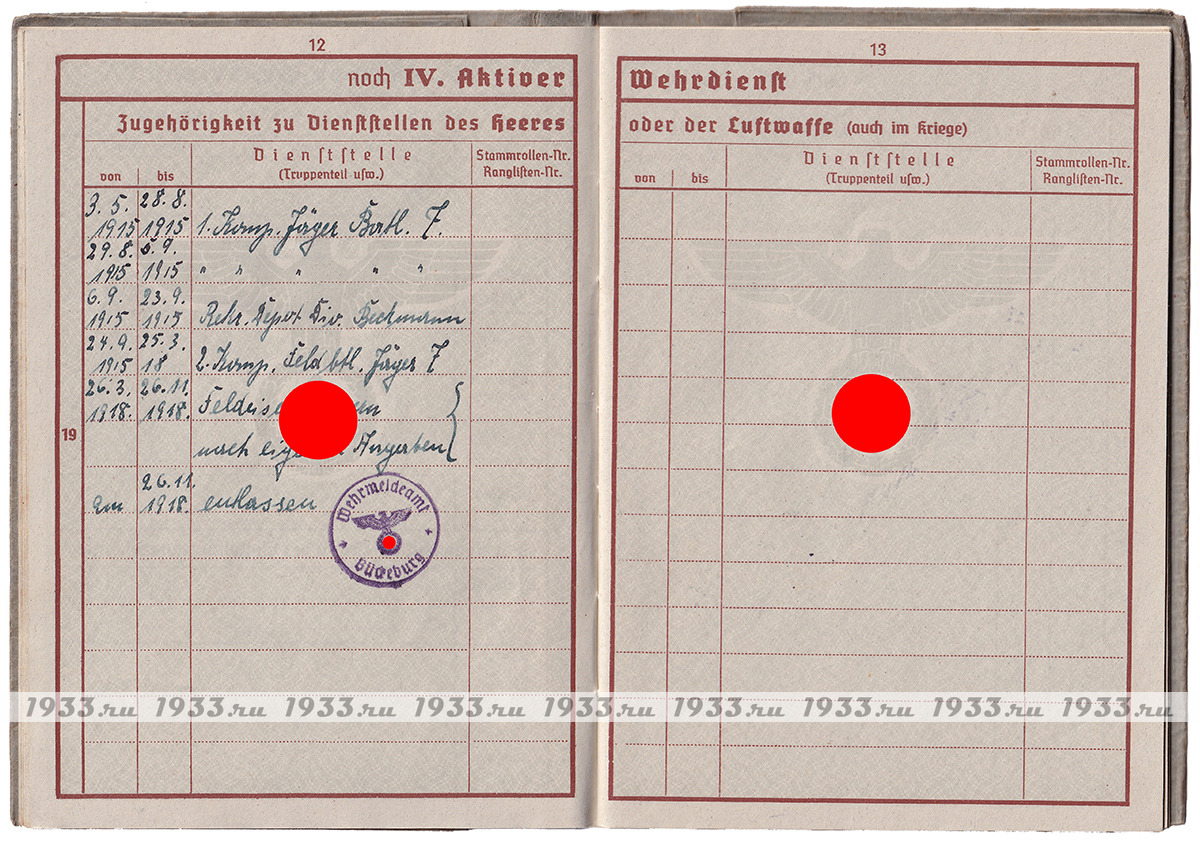 12
noch IV. Aktiver
Zugehörigkeit zu Dienststellen des Heeres
von
bis
Dienststelle
(Truppenteil usw.)
Stammrollen-Nr.
Ranglisten-Nr.
19
3. 5. 28. 8.
1915 1915 1. Komp. Jäger Batl. 7.
29. 8. 5. 9.
1915 1915 " " " " "
6. 9. 23. 9.
1915 1915 Rekr. Depot Div. Beckmann
24. 9. 25. 3.
1915 18 2. Komp. Feldbtl. Jäger 7
26. 3. 26. 11.
1918. 1918.
nach Angaben
26. 11.
am 1918. entlassen
Wehrmeldeamt
Bückeburg
13
Wehrdienst
oder der Luftwaffe (auch im Kriege)
von
bis
Dienststelle
(Truppenteil usw.)
Stammrollen-Nr.
Ranglisten-Nr.
1933.ru 1933.ru 1933.ru 1933.ru 1933.ru 1933.ru 1933.ru 1933.ru 1933.ru